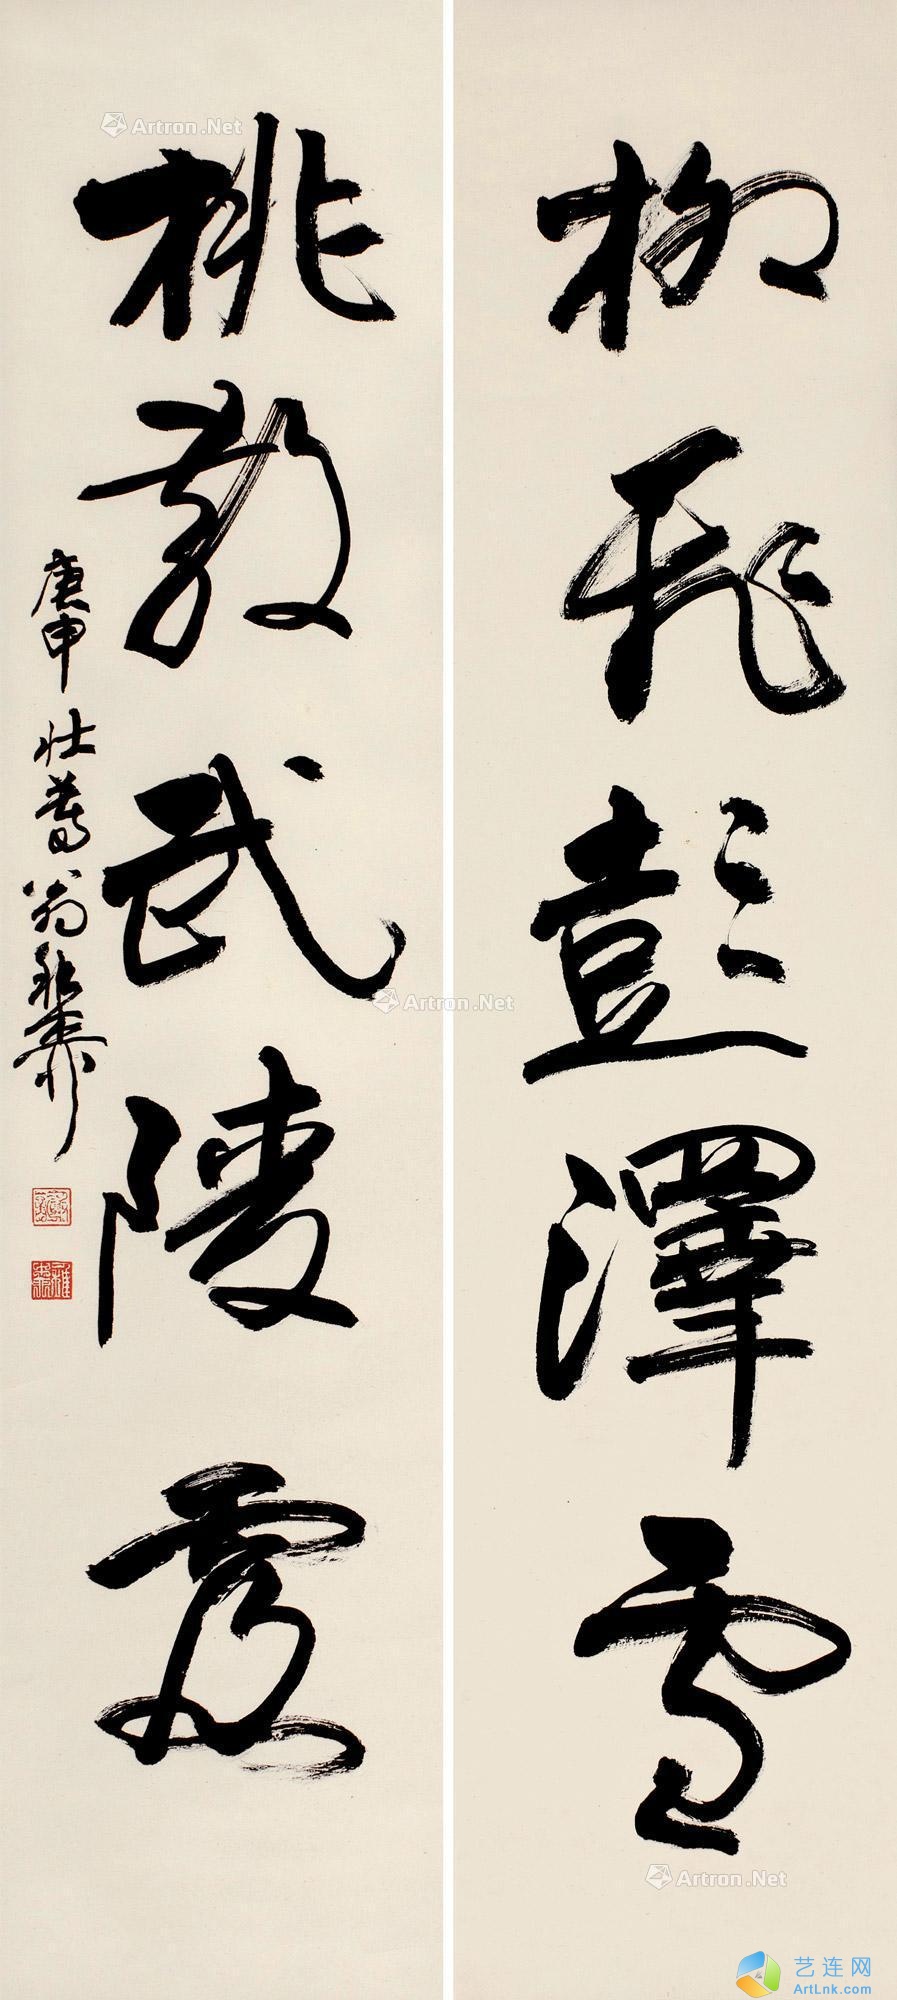 柳飛彭澤雪
桃散武陵霞
庚申壮暮翁稚柳
Artron.Net
Artron.Net
Artron.Net
艺连网
ArtLnk.com